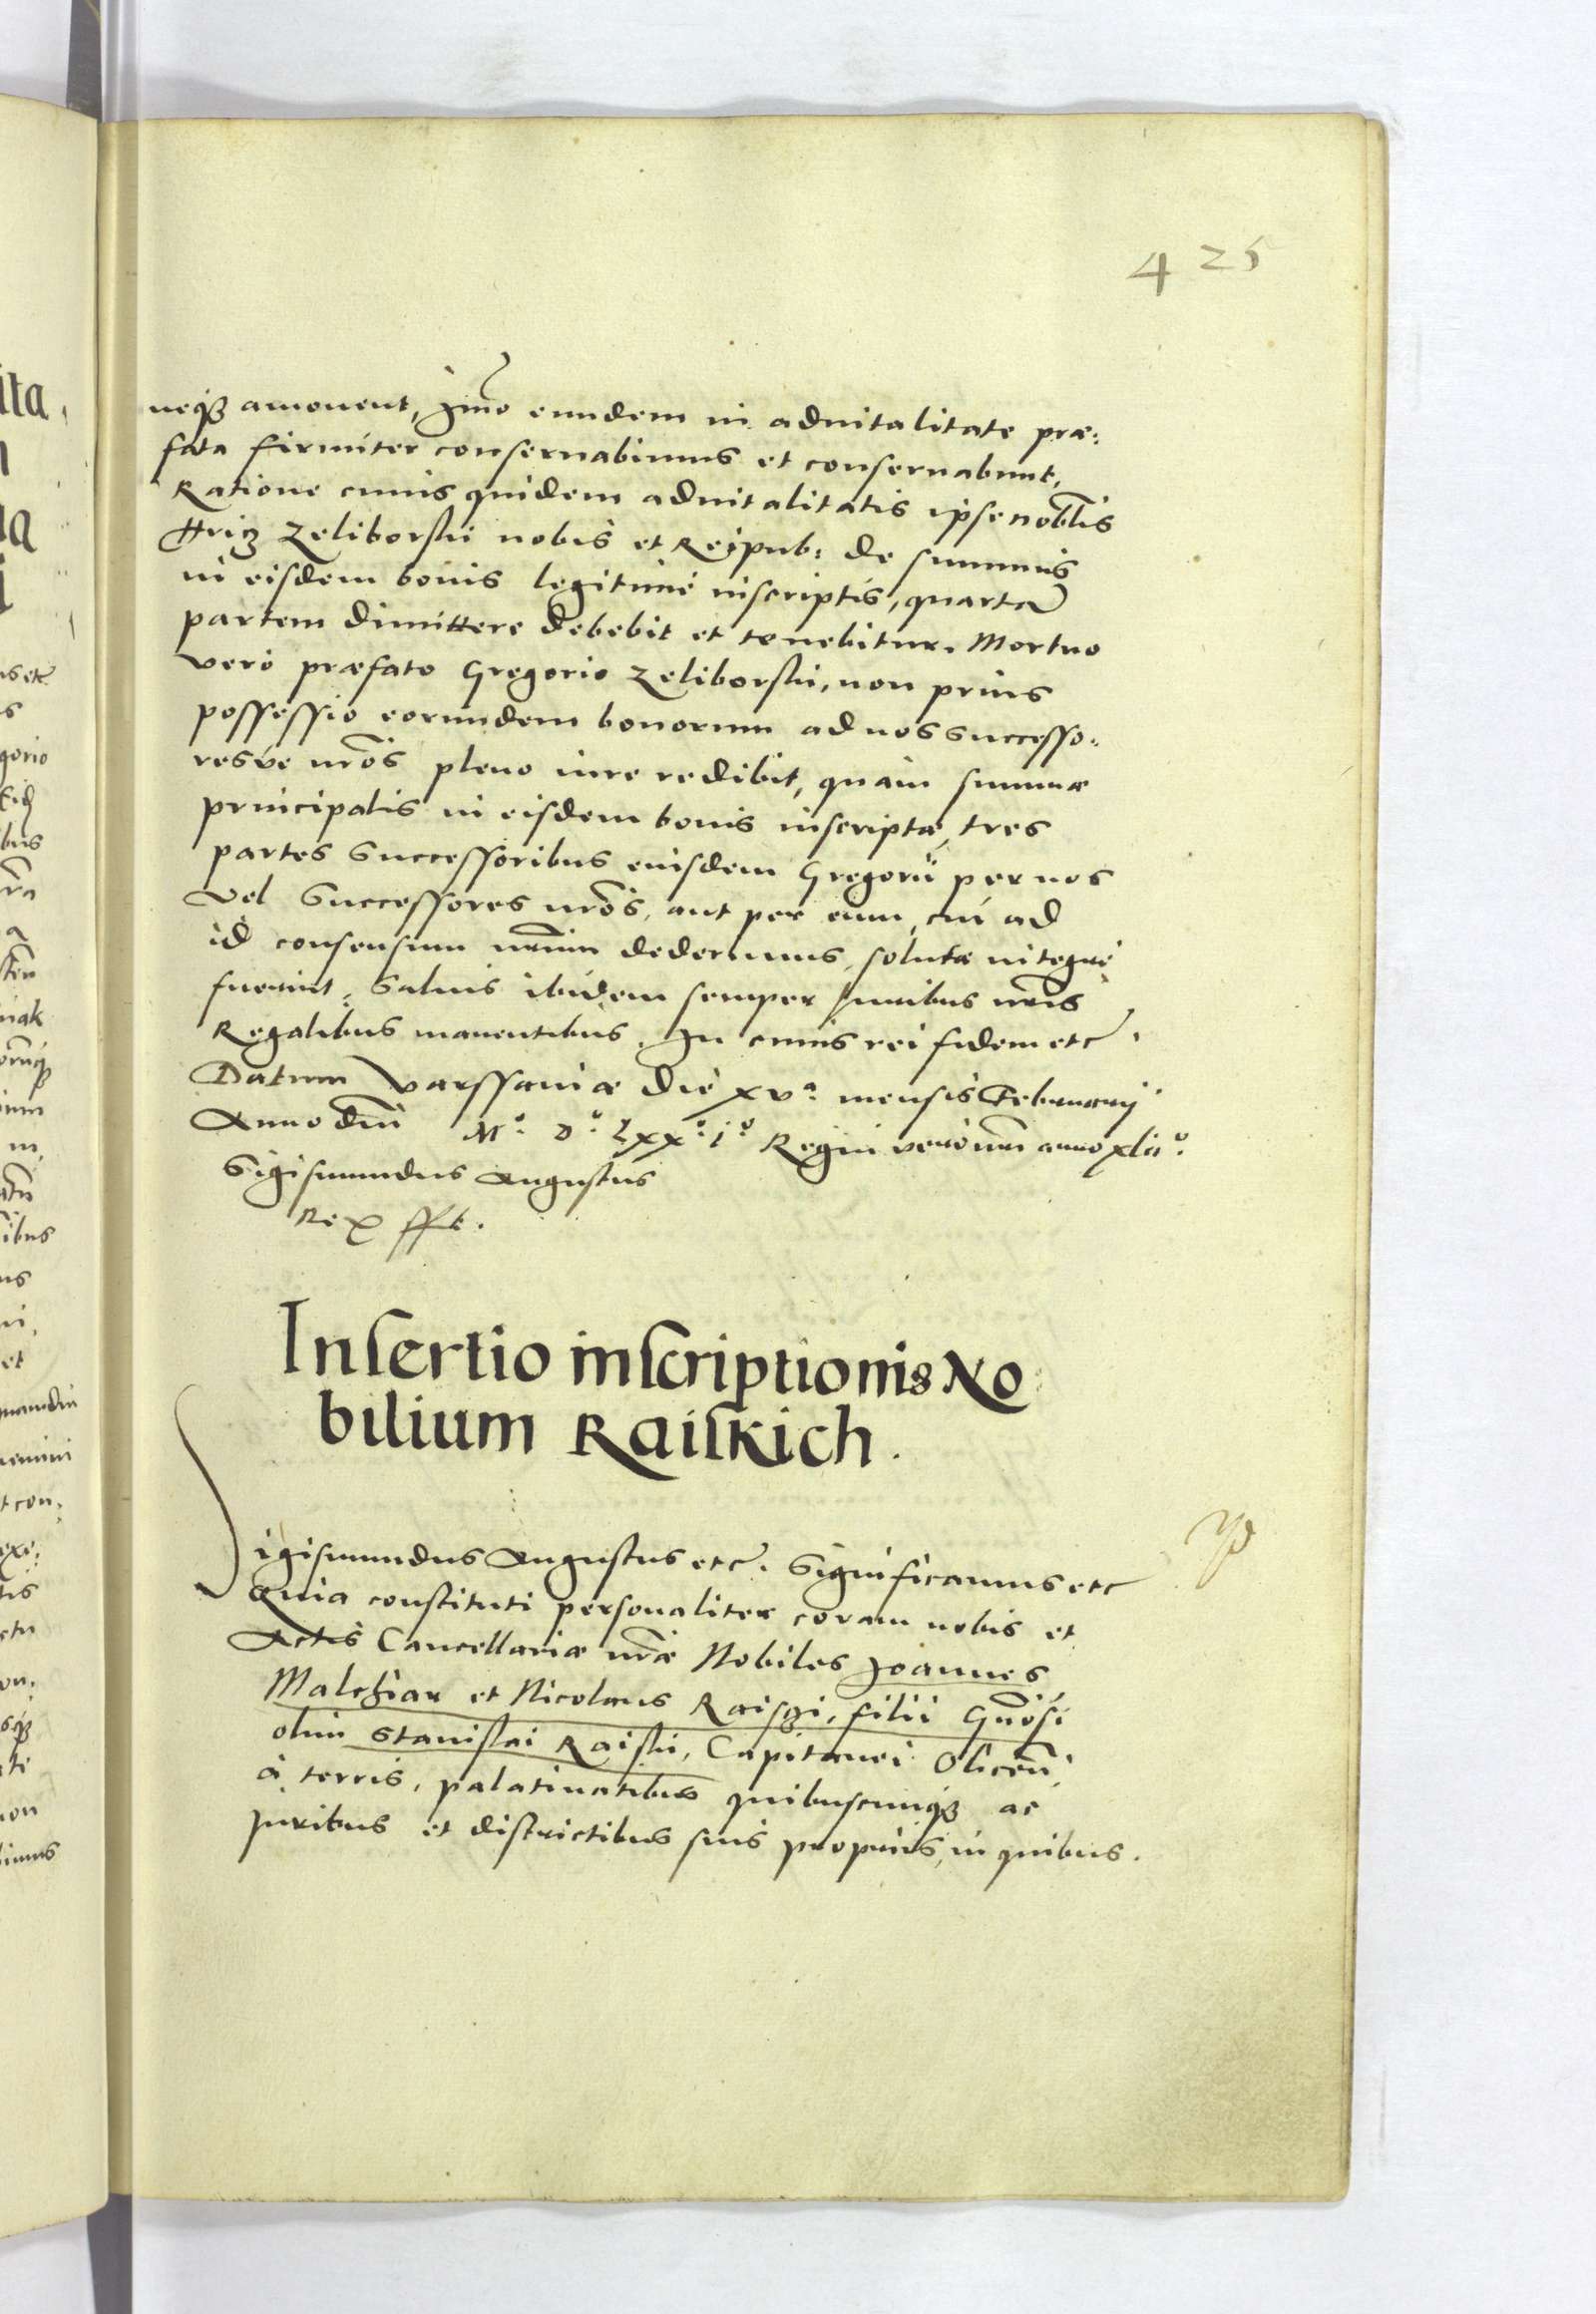 425
neq3 amouent, Imo eundem in aduitalitate præ:
fata firmiter conseruabimus et conseruabunt,
Ratione cuius quidem aduitalitatis ipse nobłis
Zeliborski nobis et Reipub: de summis
in eisdem bonis legitimè inscriptis, quartã
partem dimittere debebit et tenebitur. Mortuo
verò præfato Gregorio Zeliborski, non prius
possessio eorundem bonorum ad nos successo:
resúe nr̃os pleno iure redibit, quàm summæ
principalis in eisdem bonis inscriptæ, tres
partes Successoribus eiusdem Gregorii per nos
vel Successores nr̃os, aut per eum, cui ad
id consensum nr̃um dederimus, solutæ integrè
fuerint, Saluis ibidem semper Iuribus nr̃is
Regalibus manentibus. In cuius rei fidem etc.
Datum Varssauiæ die xvª mensis Februarij
Anno dni M° D° Lxx° i° Regni verò nr̃i anno xlii°
Sigismundus Augustus
Rex sst.
Insertio inscriptionis No
bilium Raiskich.
Sigismundus Augustus etc. Significamus etc
Quia constituti personaliter coram nobis et
Actis Cancellariæ nr̃æ Nobiles Joannes
Malchiar et Nicolaus Raisczi, filii Gnõsi
olim Stanislai Raiski, Capitanei
à terris, palatinatibus quibuscunq3 ac
Iuribus et districtibus suis proprijs, in quibus.